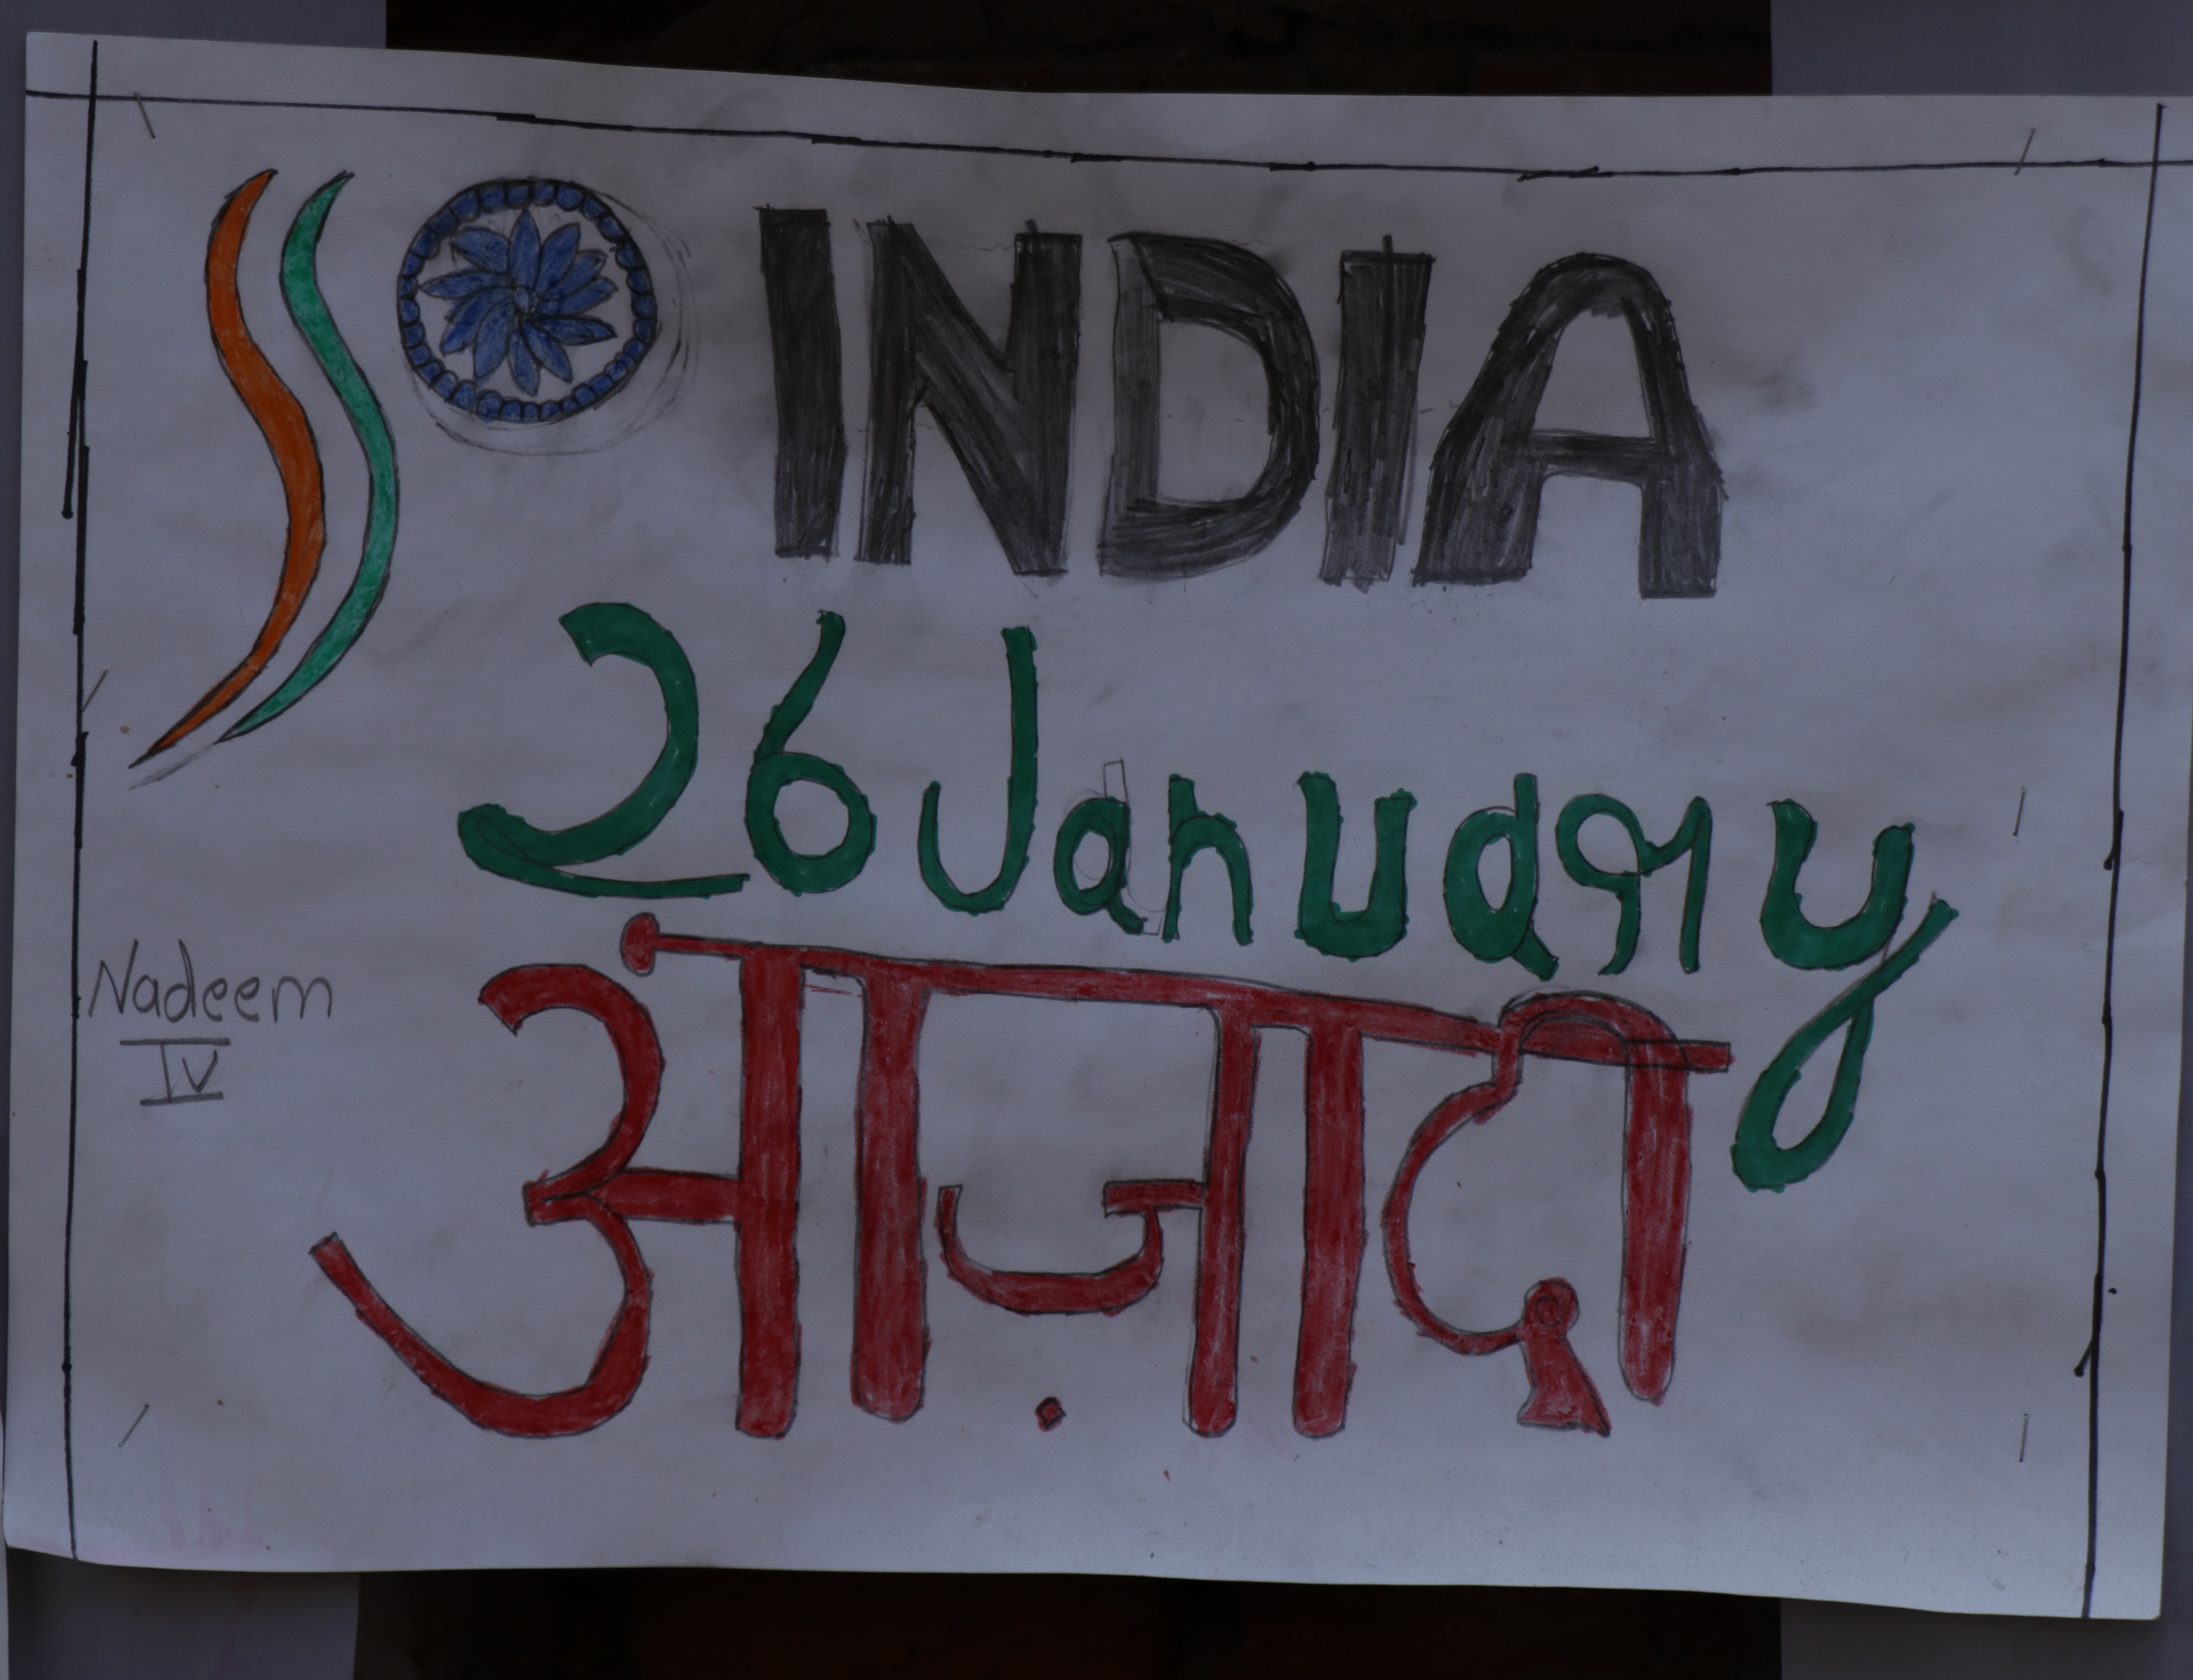 INDIA
26 January
आज़ादी
Nadeem
IV